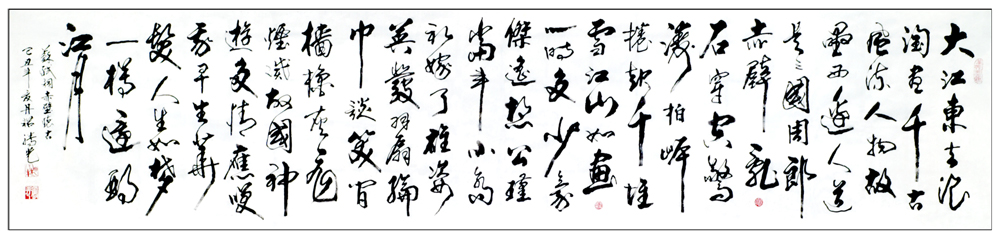 大江東去浪
淘盡千古
風流人物故
壘西邊人道
是三國周郎
赤壁亂
石穿空驚
濤拍岸
捲起千堆
雪江山如畫
一時多少豪
傑遙想公瑾
當年小喬
初嫁了雄姿
英發羽扇綸
巾談笑間
檣櫓灰飛
煙滅故國神
遊多情應笑
我早生華
髮人生如夢
一樽還酹
江月
蘇軾詞赤壁懷古
己丑年